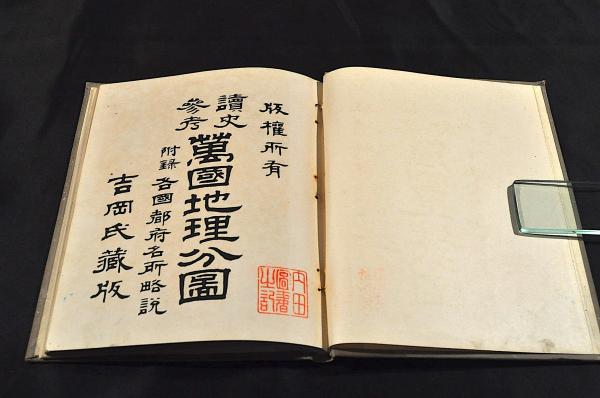 版權所有
讀史
參考
萬國地理分圖
附録
各國都府名所略說
吉岡氏藏版
内田
圖書
之記